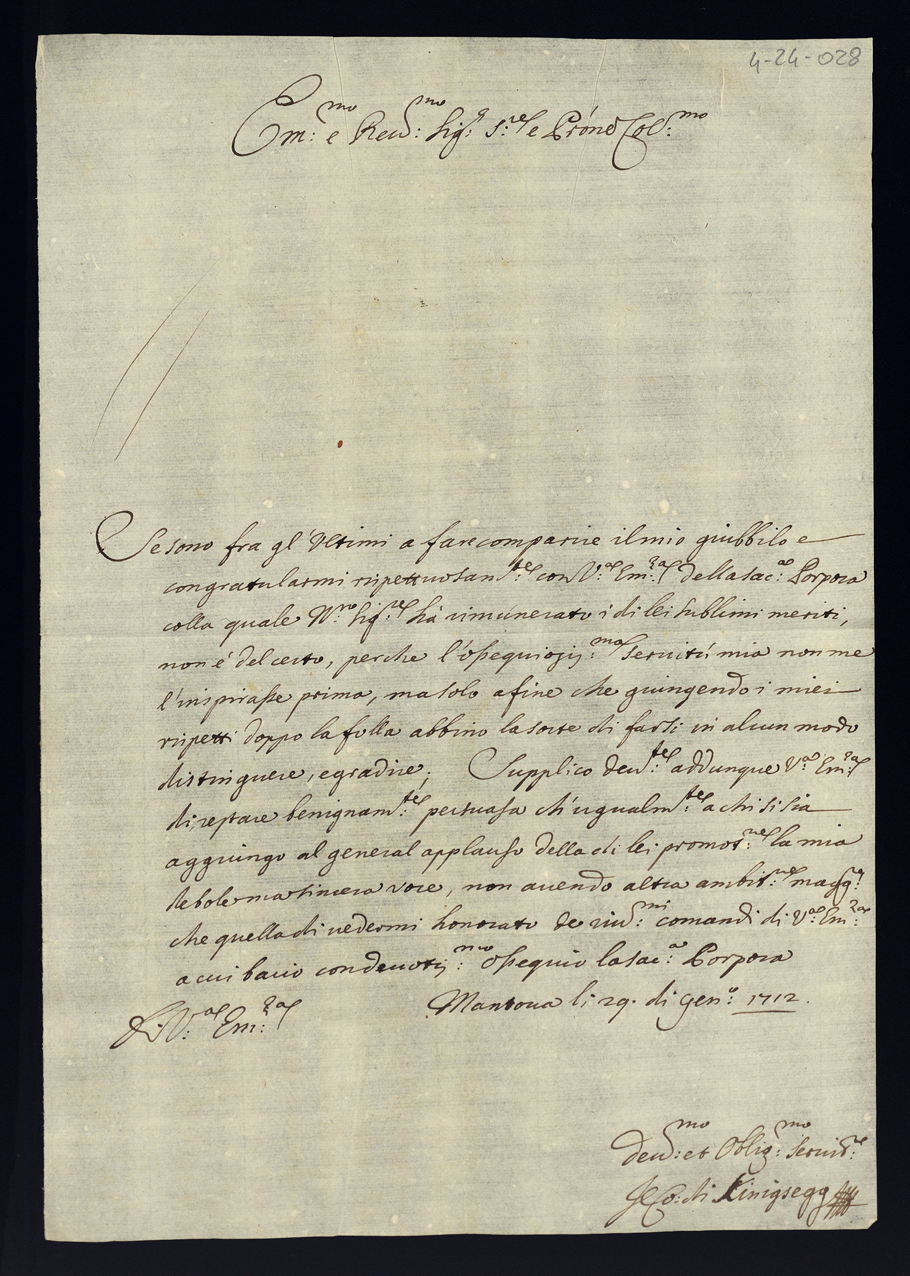 4-24-028
Em:mo e Reud:mo Sig:r S:re e Prone Col:mo
Se sono fra gl'Vltimi a fare comparire il mio giubbilo e
congratularmi rispettuosam:te con V:a Em:za della sac:a Porpora
colla quale N:ro Sig:re hà rimunerato i di lei sublimi meriti,
non é del certo, perche l'ossequiosis:ma seruitú mia non me
l'inspirasse prima, ma solo a fine che giungendo i miei
rispetti doppo la folla abbino la sorte di farsi in alcun modo
distinguere, e gradire; Supplico deu:te addunque V:a Em:za
di restare benignam:te persuasa ch'ugualm:te a chi si sia
aggiungo al general applauso della di lei promot:ne la mia
debole ma sincera voce, non auendo altra ambit:ne magg:e
che quella di uedermi honorato de riu:mi comandi di V:a Em:za
a cui bacio con deuotis:mo ossequio la sac:a Porpora
Mantoua li 29. di Gen:o 1712.
Di V:a Em:za
Deu:mo et Oblig:mo Seruid:re
Il Co: di Kinigsegg